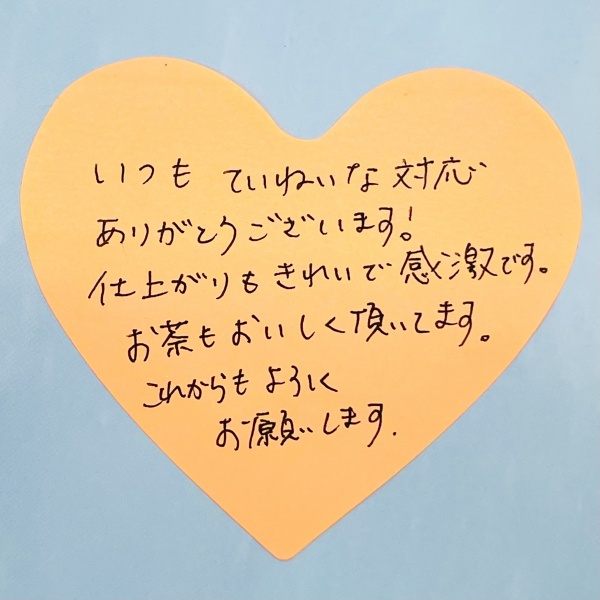 いつも ていねいな対応
ありがとうございます!
仕上がりもきれいで感激です。
お茶もおいしく頂いてます。
これからもよろしく
お願いします.